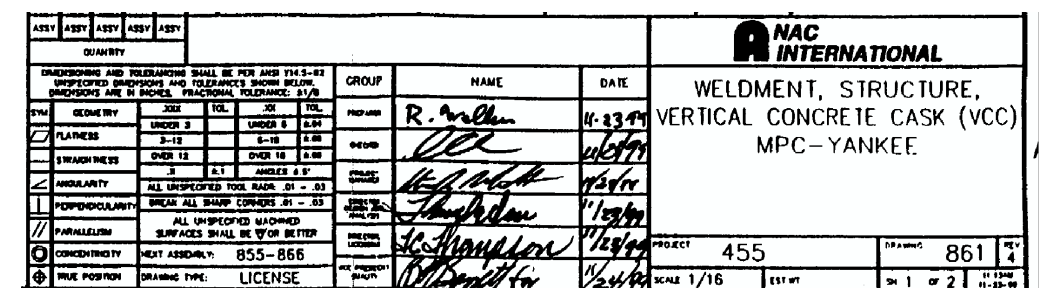 ASSY ASSY ASSY ASSY ASSY
QUANTITY
DIMENSIONING AND TOLERANCING SHALL BE PER ANSI Y14.5-82
UNSPECIFIED DIMENSIONS AND TOLERANCES SHOWN BELOW.
DIMENSIONS ARE IN INCHES. FRACTIONAL TOLERANCE: ±1/8
SYM GEOMETRY .XXX TOL. .XX TOL.
UNDER 3 UNDER 6
FLATNESS 3-12 6-18
STRAIGHTNESS OVER 12 OVER 18
ANGULARITY .X ±.1 ANGLES
ALL UNSPECIFIED TOOL RADII .01 - .03
PERPENDICULARITY BREAK ALL SHARP CORNERS .01 - .03
PARALLELISM ALL UNSPECIFIED MACHINED
SURFACES SHALL BE OR BETTER
CONCENTRICITY NEXT ASSEMBLY: 855-866
TRUE POSITION DRAWING TYPE: LICENSE
GROUP NAME DATE
PREPARED R. 11-23-99
CHECKED
PROJECT MANAGER
11/23/99
DIRECTOR LICENSING Thompson 11/23/99
VICE PRESIDENT QUALITY for 11/24/99
NAC
INTERNATIONAL
WELDMENT, STRUCTURE,
VERTICAL CONCRETE CASK (VCC)
MPC-YANKEE
PROJECT 455 DRAWING 861 REV 4
SCALE 1/16 EST WT SH 1 OF 2
11-23-99